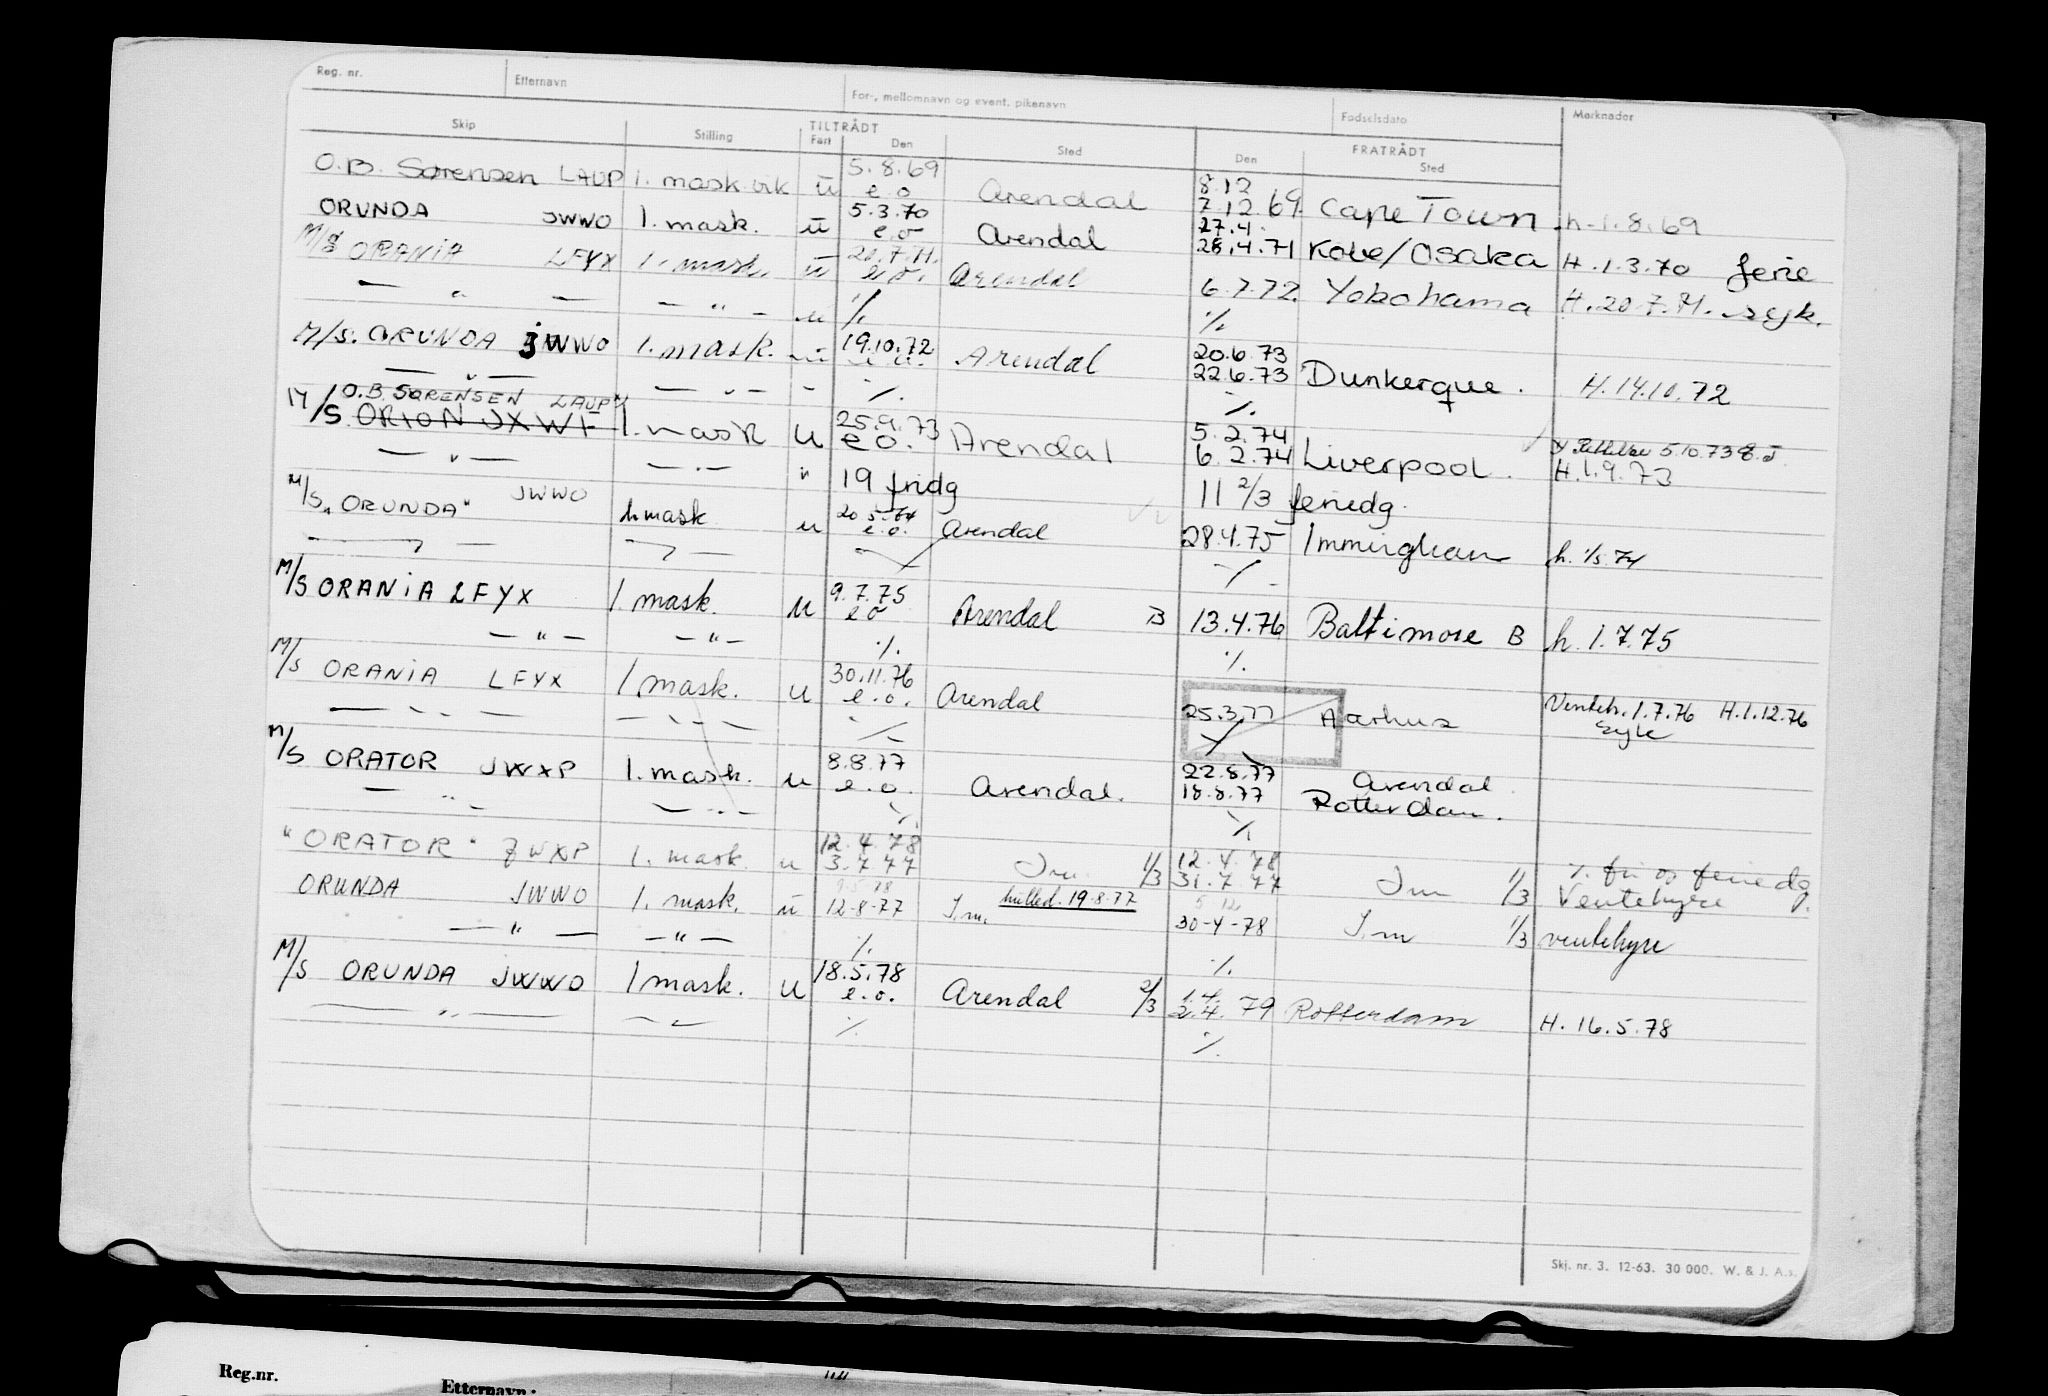 Reg. nr. Etternavn For-, mellomnavn og event. pikenavn Fødselsdato Merknader
Skip Stilling TILTRÅDT FRATRÅDT
Fart Den Sted Den Sted
O.B. Sørensen LAUP 1. mask.vik ū 5.8.69 e.o Arendal 8.12 7.12.69. Cape Town h. 1.8.69
ORUNDA JWWO 1. mask. ū 5.3.70 e.o Arendal 27.4. 28.4.71 Kobe/Osaka H. 1.3.70 ferie
M/S ORANIA LFYX 1. mask. ū 20.7.71. e.o. Arendal 6.7.72. Yokohama H. 20.7.71. sejk.
— " — — " — u ./. ./.
M/S. ORUNDA JWWO 1. mask. ū 19.10.72 e.o. Arendal 20.6.73 22.6.73 Dunkerque. H. 14.10.72
— " — — " — - ./. ./.
O.B. SØRENSEN LAUP
M/S ORION JXWF 1. mask u 25.9.73 e o. Arendal 5.2.74 6.2.74 Liverpool. 5.10.73 H. 1.9.73
— " — — " — " 19 fridg 11 2/3 feriedg.
M/S "ORUNDA" JWWO 1. mask u e.o. Arendal 28.4.75 Immingham h. 1/5.74
M/S ORANIA LFYX 1. mask. u 9.7.75 e o Arendal B 13.4.76 Baltimore B h. 1.7.75
— " — — " — ./. ./.
M/S ORANIA LFYX 1 mask. u 30.11.76 e.o. Arendal 25.3.77 Aarhus Venteh. 1.7.76 H. 1.12.76
syke
M/S ORATOR JWXP 1. mask. u 8.8.77 e.o. Arendal. 22.8.77 Arendal
18.8.77 Rotterdam.
— " — — " — ./. ./.
"ORATOR" JWXP 1. mask. u 12.4.78 3.7.77 I m 1/3 12.4.78 31.7.77 I m 1/3 ./. fri og feriedg
Ventehyre
ORUNDA JWWO 1. mask. ū 12-8-77 I.m. hulled. 19.8.77 30-4-78 I.m 1/3 ventehyre
— " — — " — ./. ./.
M/S ORUNDA JWWO 1 mask. u 18.5.78 e.o. Arendal 2/3 1.4. 2.4.79 Rotterdam H. 16.5.78
— " — — " — ./. ./.
Skj. nr. 3. 12-63. 30 000. W. & J. A.s.
Reg.nr. Etternavn: